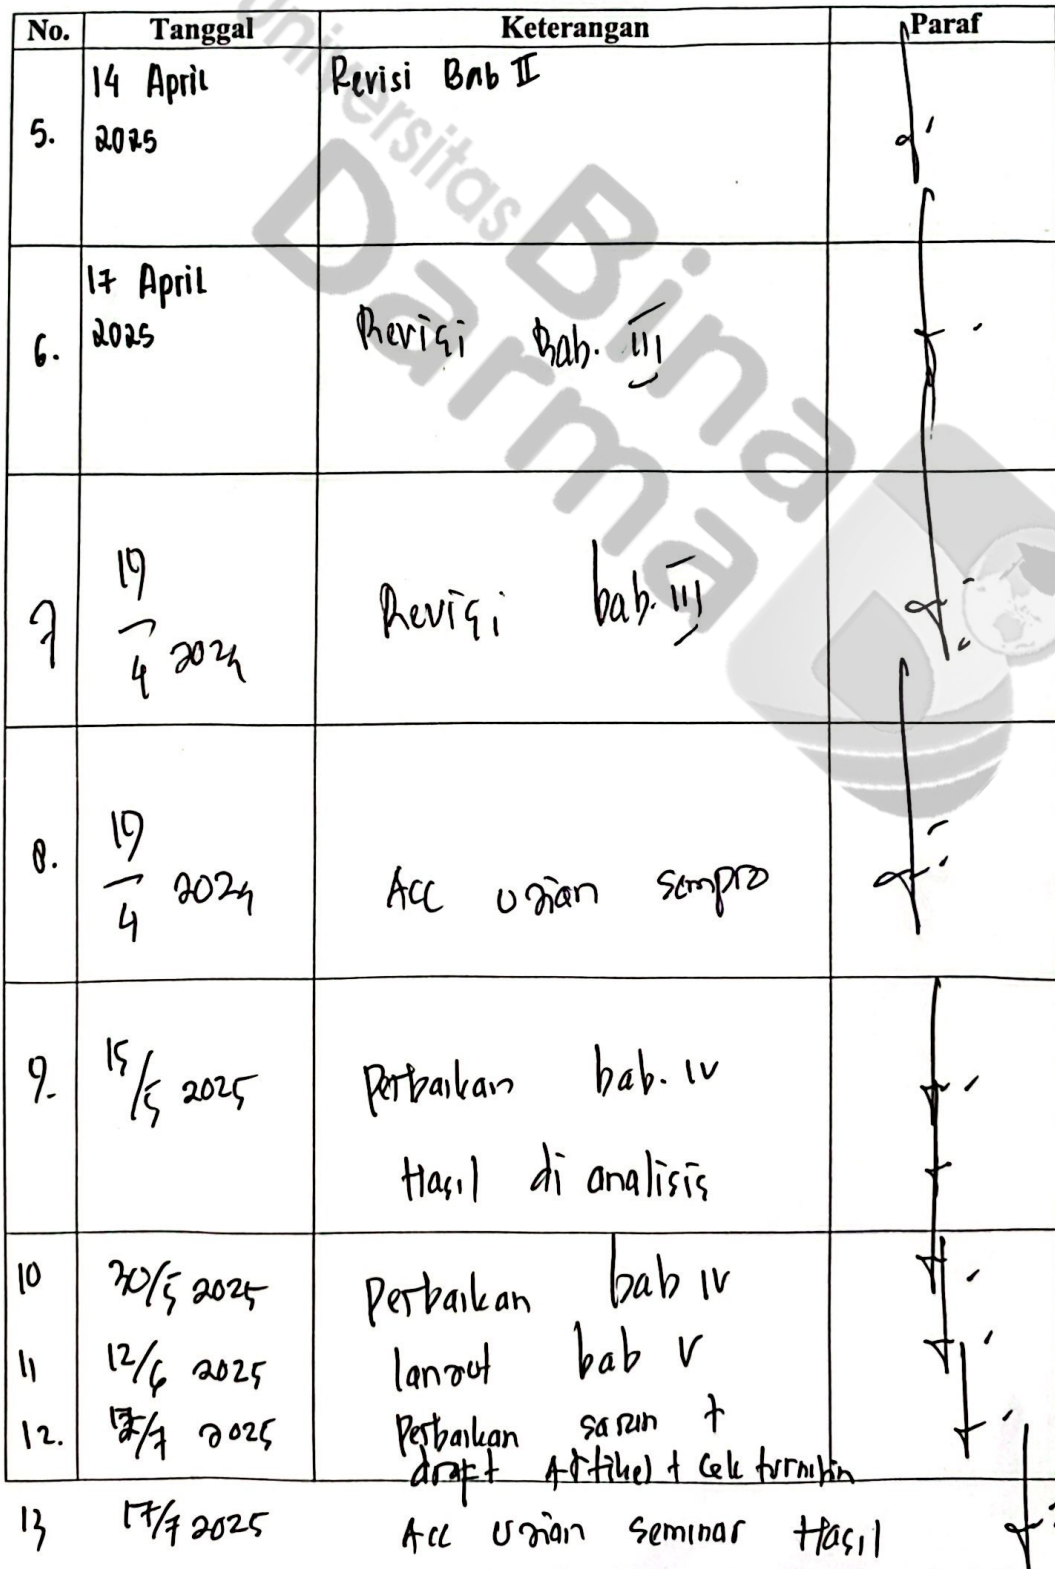 No. Tanggal Keterangan Paraf
14 April Revisi Bab II
5. 2025
17 April
6. 2025 Revisi Bab. III
7 19/4 2024 Revisi bab. III
8. 19/4 2024 Acc ujian sempro
9. 15/5 2025 Perbaikan bab. IV
Hasil di analisis
10 30/5 2025 Perbaikan bab IV
11 12/6 2025 lanjut bab V
12. /7 2025 Perbaikan saran +
draft Artikel + Cek turnitin
13 17/7 2025 Acc ujian seminar Hasil
Universitas
Bina
Darma